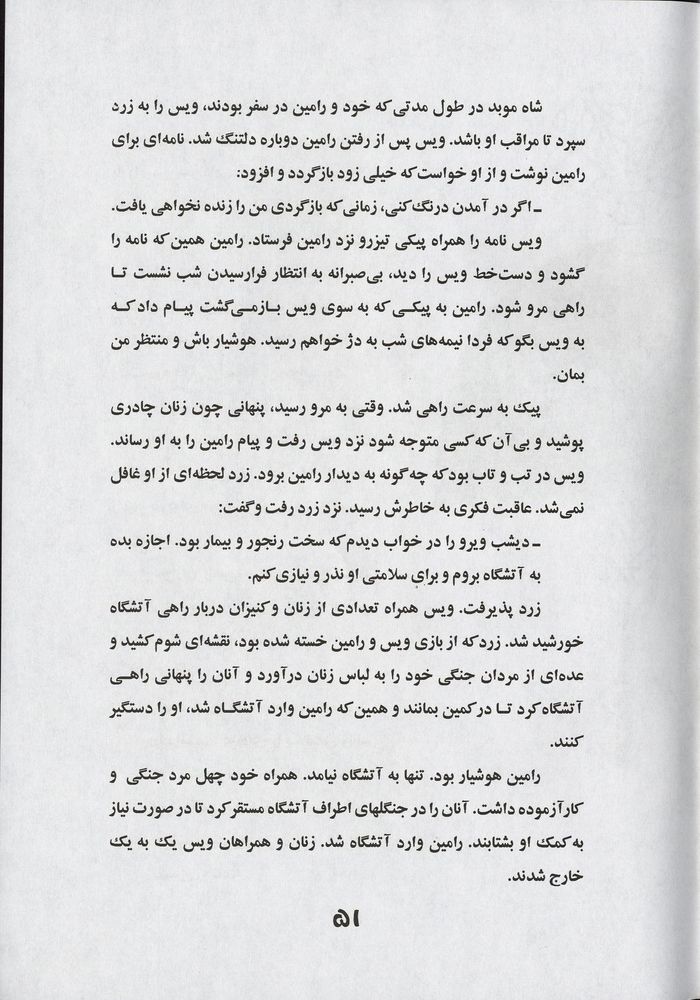 شاه موبد در طول مدتی که خود و رامین در سفر بودند، ویس را به زرد
سپرد تا مراقب او باشد. ویس پس از رفتن رامین دوباره دلتنگ شد. نامه‌ای برای
رامین نوشت و از او خواست که خیلی زود بازگردد و افزود:
ـ اگر در آمدن درنگ کنی، زمانی که بازگردی من را زنده نخواهی یافت.
ویس نامه را همراه پیکی تیزرو نزد رامین فرستاد. رامین همین که نامه را
گشود و دست‌خط ویس را دید، بی‌صبرانه به انتظار فرارسیدن شب نشست تا
راهی مرو شود. رامین به پیکی که به سوی ویس بازمی‌گشت پیام داد که
به ویس بگو که فردا نیمه‌های شب به دژ خواهم رسید. هوشیار باش و منتظر من
بمان.
پیک به سرعت راهی شد. وقتی به مرو رسید، پنهانی چون زنان چادری
پوشید و بی‌آن که کسی متوجه شود نزد ویس رفت و پیام رامین را به او رساند.
ویس در تب و تاب بود که چه گونه به دیدار رامین برود. زرد لحظه‌ای از او غافل
نمی‌شد. عاقبت فکری به خاطرش رسید. نزد زرد رفت و گفت:
ـ دیشب ویرو را در خواب دیدم که سخت رنجور و بیمار بود. اجازه بده
به آتشگاه بروم و برای سلامتی او نذر و نیازی کنم.
زرد پذیرفت. ویس همراه تعدادی از زنان و کنیزان دربار راهی آتشگاه
خورشید شد. زرد که از بازی ویس و رامین خسته شده بود، نقشه‌ای شوم کشید و
عده‌ای از مردان جنگی خود را به لباس زنان درآورد و آنان را پنهانی راهی
آتشگاه کرد تا در کمین بمانند و همین که رامین وارد آتشگاه شد، او را دستگیر
کنند.
رامین هوشیار بود. تنها به آتشگاه نیامد. همراه خود چهل مرد جنگی و
کارآزموده داشت. آنان را در جنگلهای اطراف آتشگاه مستقر کرد تا در صورت نیاز
به کمک او بشتابند. رامین وارد آتشگاه شد. زنان و همراهان ویس یک به یک
خارج شدند.
۵۱